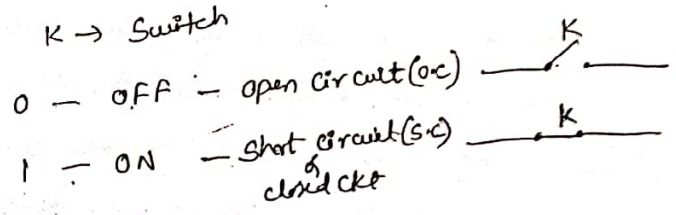 K → Switch
K
0 – OFF – open circuit (o.c)
K
1 – ON – Short circuit (s.c)
or
closed ckt